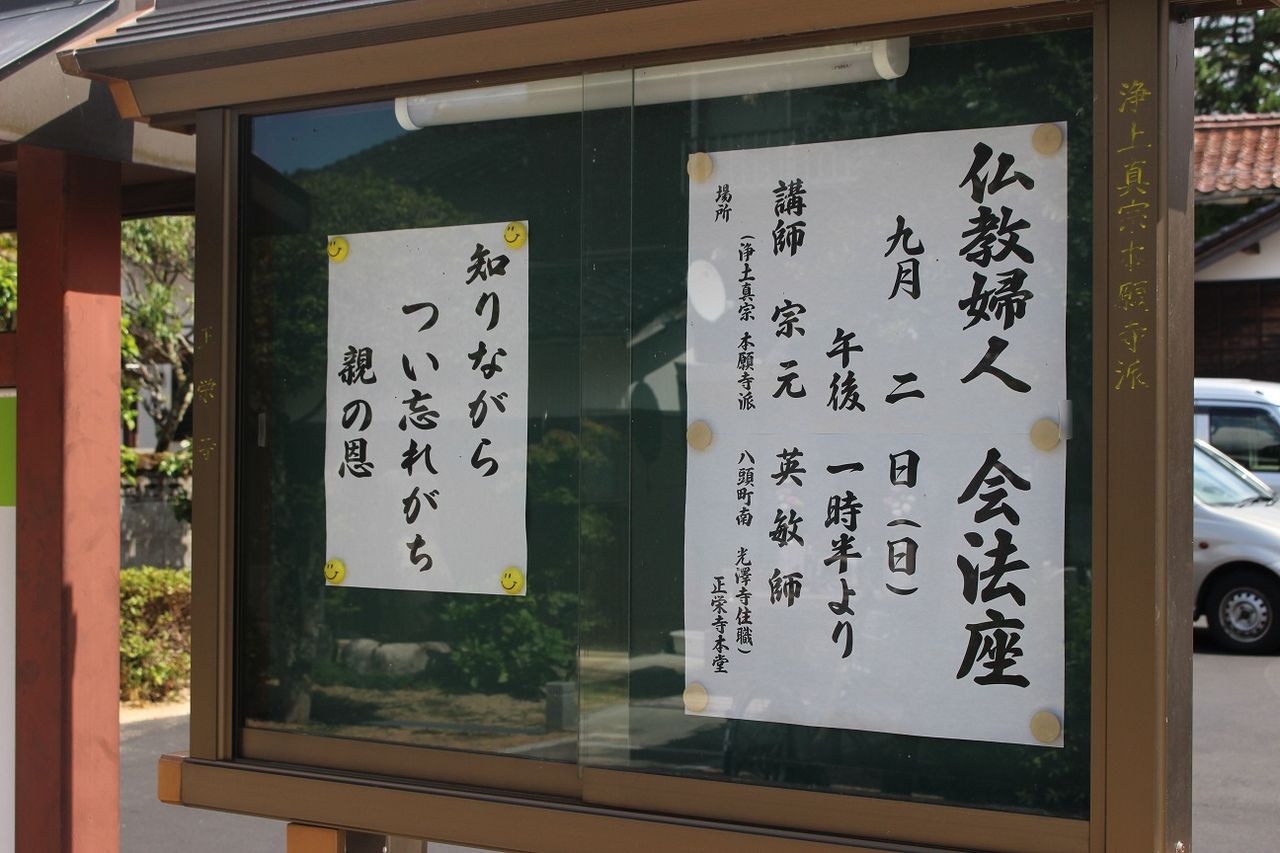 浄土真宗本願寺派
仏教婦人会法座
九月二日（日）
午後一時半より
講師 宗元英敏師
（浄土真宗 本願寺派 八頭町南 光澤寺住職）
場所 正栄寺本堂
知りながら
つい忘れがち
親の恩
正栄寺